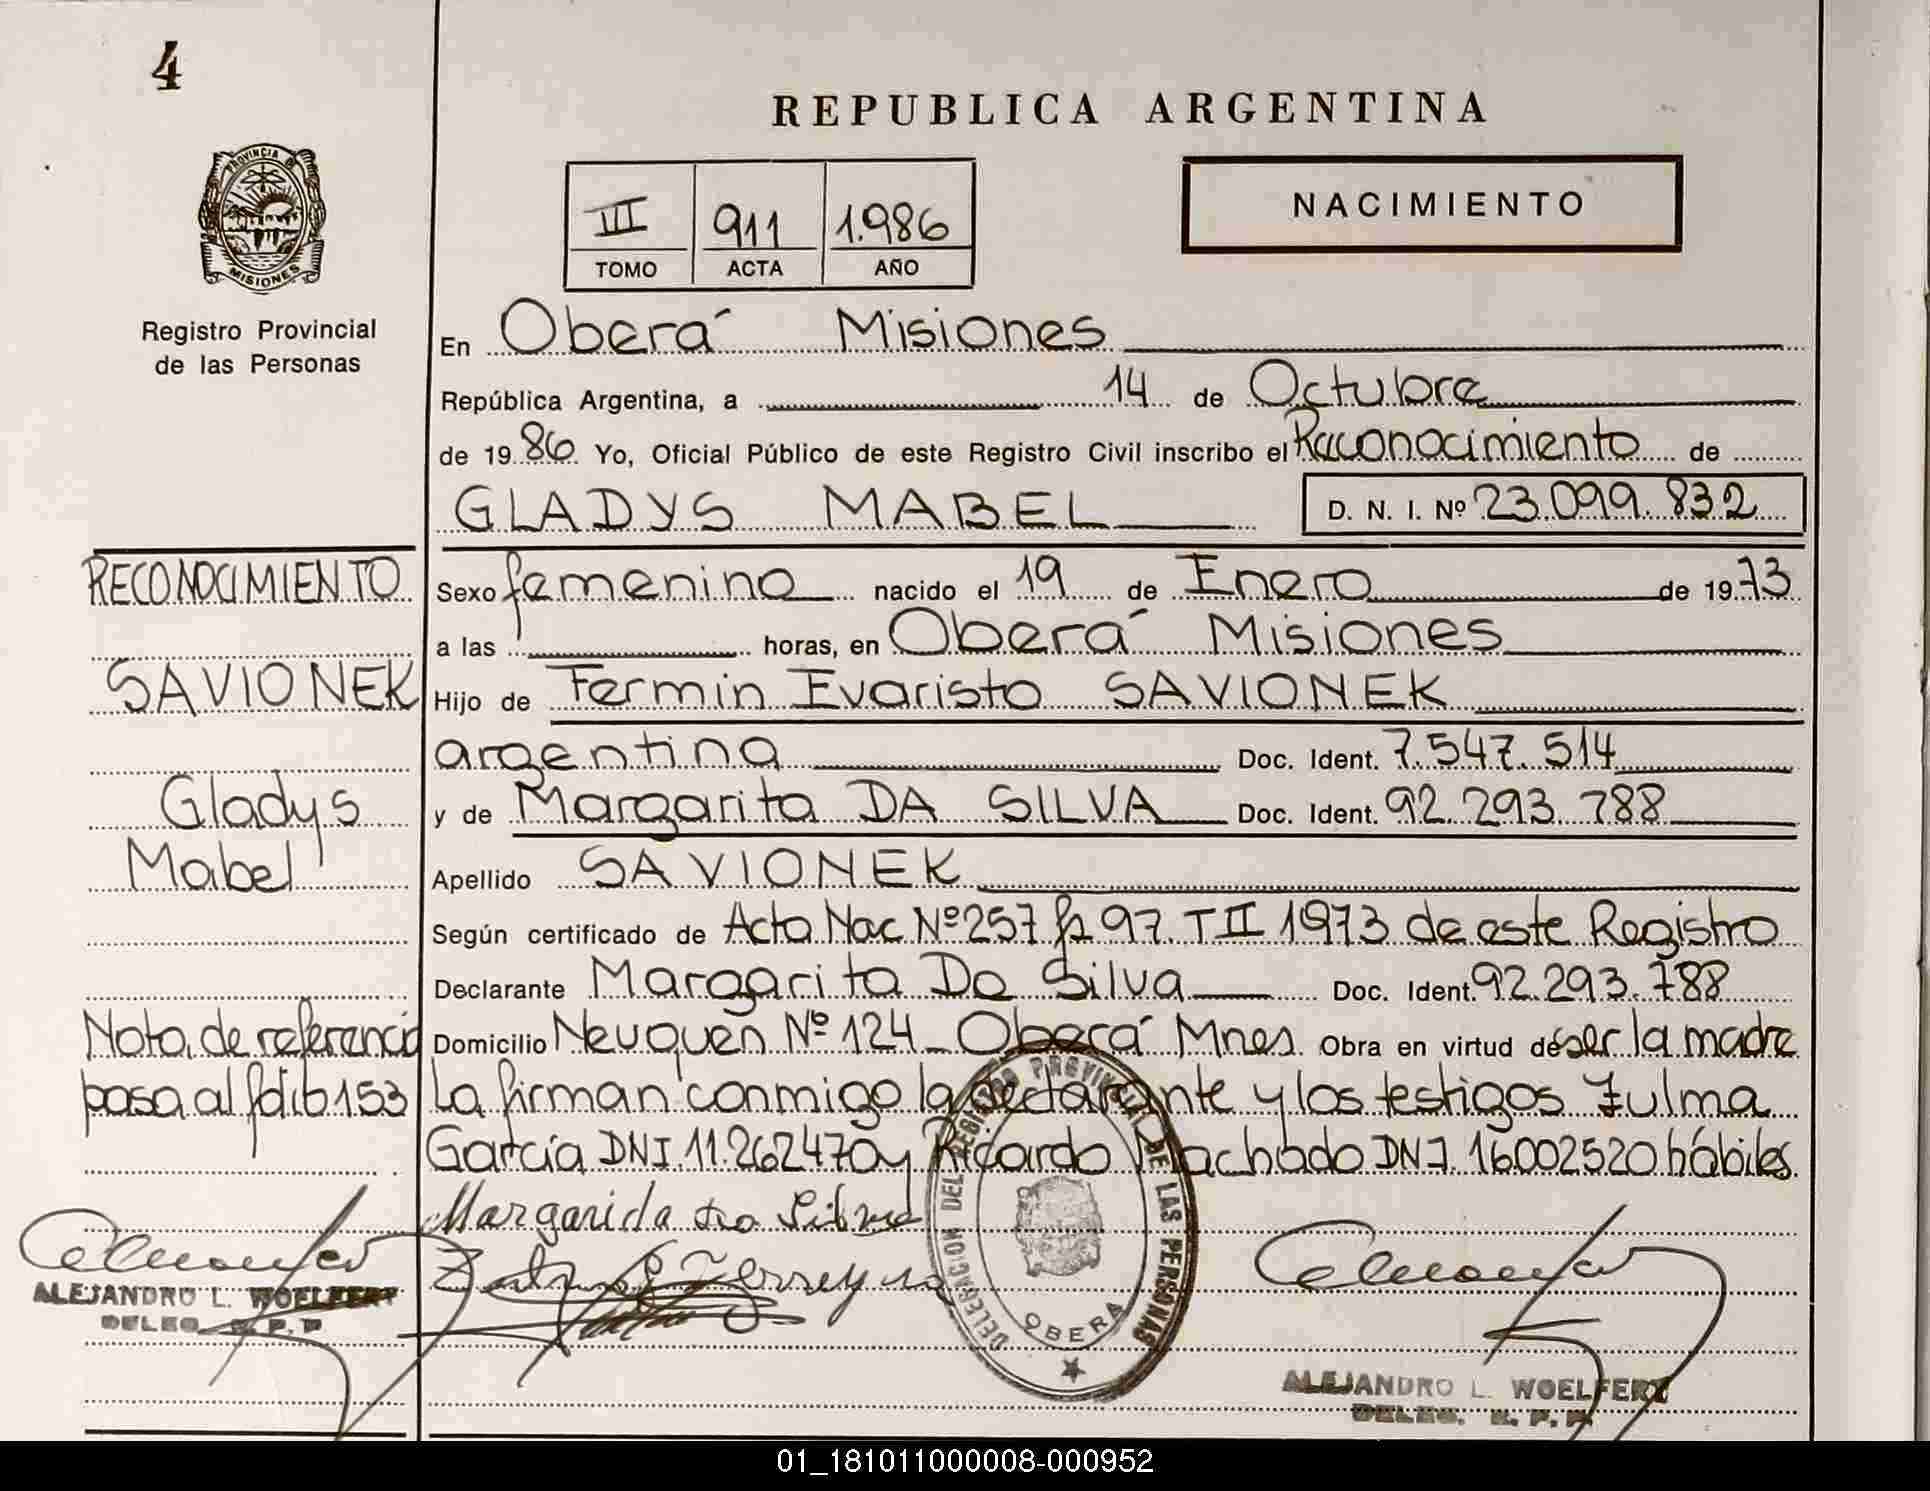 4
REPUBLICA ARGENTINA
PROVINCIA DE
MISIONES
Registro Provincial
de las Personas
III 911 1.986
TOMO ACTA AÑO
NACIMIENTO
En Oberá Misiones
República Argentina, a 14 de Octubre
de 1986 Yo, Oficial Público de este Registro Civil inscribo el Reconocimiento de
GLADYS MABEL D. N. I. Nº 23.099.832
RECONOCIMIENTO
SAVIONEK
Gladys
Mabel
Nota de referencia
pasa al folio 153
Sexo femenino nacido el 19 de Enero de 1973
a las horas, en Oberá Misiones
Hijo de Fermin Evaristo SAVIONEK
argentina Doc. Ident. 7.547.514
y de Margarita DA SILVA Doc. Ident. 92.293.788
Apellido SAVIONEK
Según certificado de Acta Nac Nº 257 fs 97 T II 1973 de este Registro
Declarante Margarita Da Silva Doc. Ident. 92.293.788
Domicilio Neuquén Nº 124 Oberá Mnes. Obra en virtud de ser la madre
La firman conmigo la declarante y los testigos Zulma
García DNI. 11.262470 y Ricardo Machado DNI. 16002520 hábiles.
Margarida da Silva
DELEGACION DEL REGISTRO PROVINCIAL DE LAS PERSONAS
OBERA
ALEJANDRO L. WOELFERT
DELEG. R. P. P.
ALEJANDRO L. WOELFERT
DELEG. R. P. P.
01_181011000008-000952